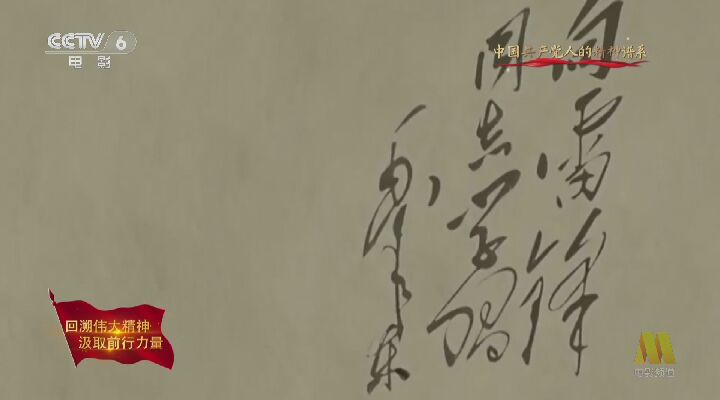 CCTV 6
电影
中国共产党人的精神谱系
向雷锋
同志学习
毛泽东
回溯伟大精神
汲取前行力量
电影频道